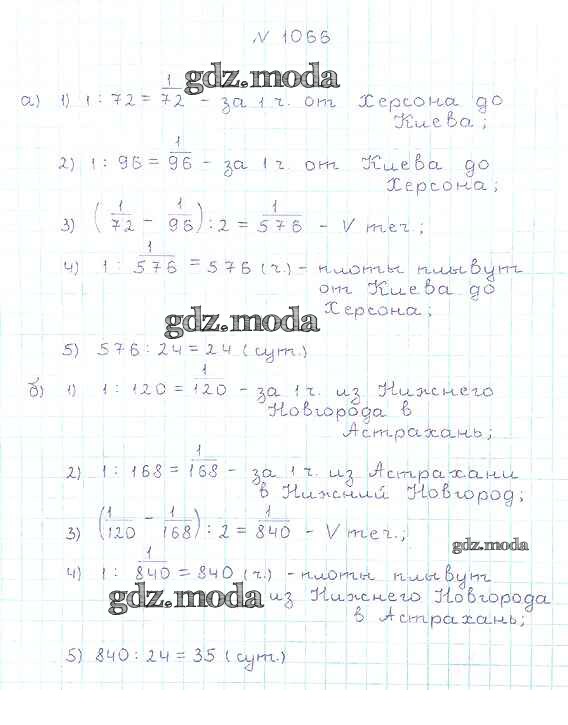 N 1066
gdz.moda
а) 1) 1 : 72 = 1/72 - за 1 ч. от Херсона до
Киева;
2) 1 : 96 = 1/96 - за 1 ч. от Киева до
Херсона;
3) (1/72 - 1/96) : 2 = 1/576 - V теч.;
4) 1 : 1/576 = 576 (ч.) - плоты плывут
от Киева до
Херсона;
gdz.moda
5) 576 : 24 = 24 (сут.)
б) 1) 1 : 120 = 1/120 - за 1 ч. из Нижнего
Новгорода в
Астрахань;
2) 1 : 168 = 1/168 - за 1 ч. из Астрахани
в Нижний Новгород;
3) (1/120 - 1/168) : 2 = 1/840 - V теч.;
gdz.moda
4) 1 : 1/840 = 840 (ч.) - плоты плывут
gdz.moda из Нижнего Новгорода
в Астрахань;
5) 840 : 24 = 35 (сут.)